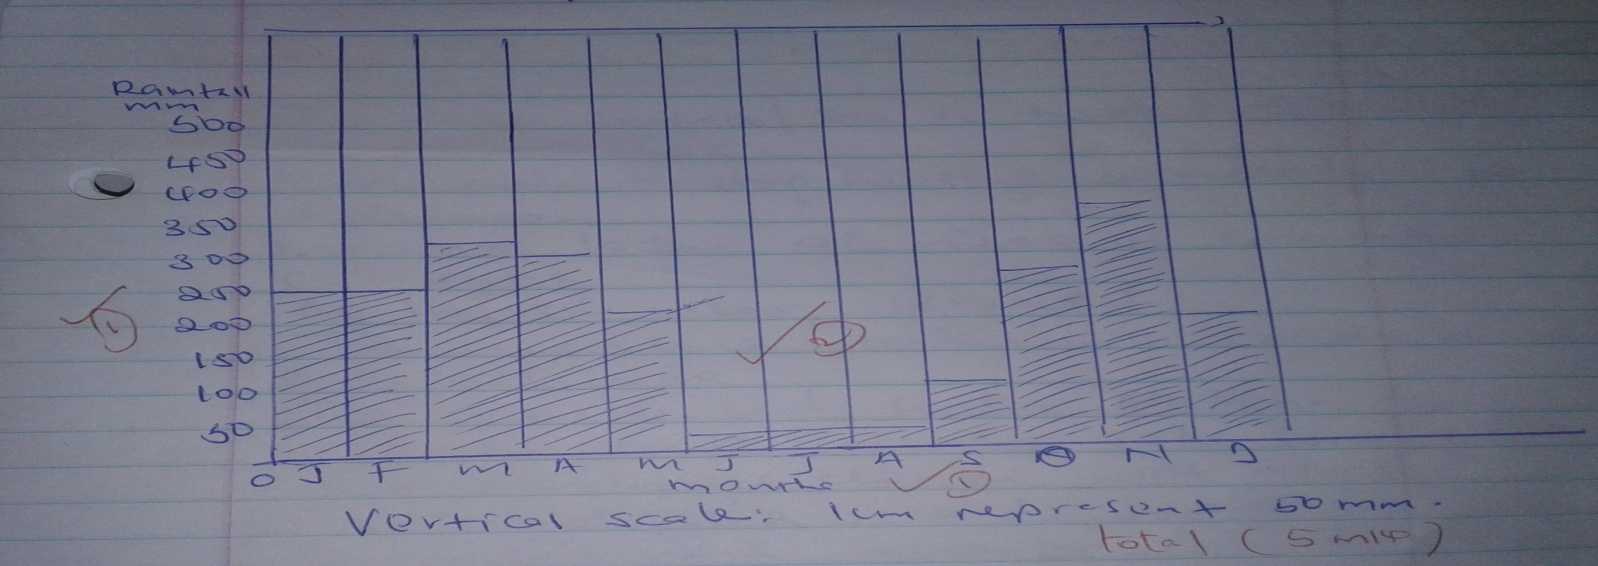 Rainfall
mm
500
450
400
350
300
250
200
150
100
50
0 J F M A M J J A S O N D
months
Vertical scale: 1cm represent 50mm.
total (5 mks)